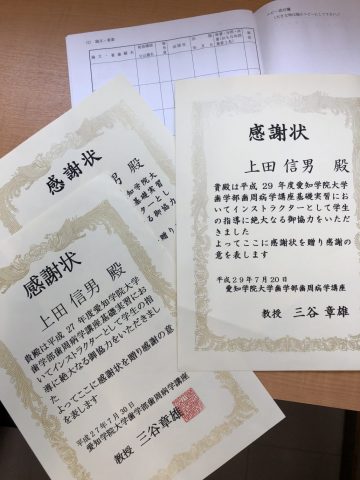 感謝状
上田信男 殿
貴殿は平成29年度愛知学院大学
歯学部歯周病学講座基礎実習にお
いてインストラクターとして学生
の指導に絶大なる御協力をいただ
きました
よってここに感謝状を贈り感謝の
意を表します
平成29年7月20日
愛知学院大学歯学部歯周病学講座
教授 三谷章雄
感謝状
殿
感謝状
上田信男 殿
貴殿は平成27年度愛知学院大学
歯学部歯周病学講座基礎実習にお
いてインストラクターとして学生の指
導に絶大なる御協力をいただきまし
た
よってここに感謝状を贈り感謝の意
を表します
平成27年7月30日
愛知学院大学歯学部歯周病学講座
教授 三谷章雄